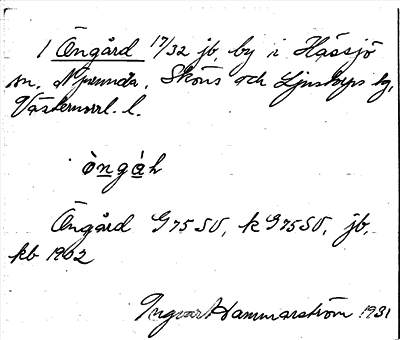 1 Öngård 17/32 jb, by i Hässjö
sn, N prenda, Sköns och Ljustorps tg,
Västernorrl. l.
òngàh
Öngård G 75 SV, k G 75 SV, jb,
kb 1902
Ingvar Hammarström 1931